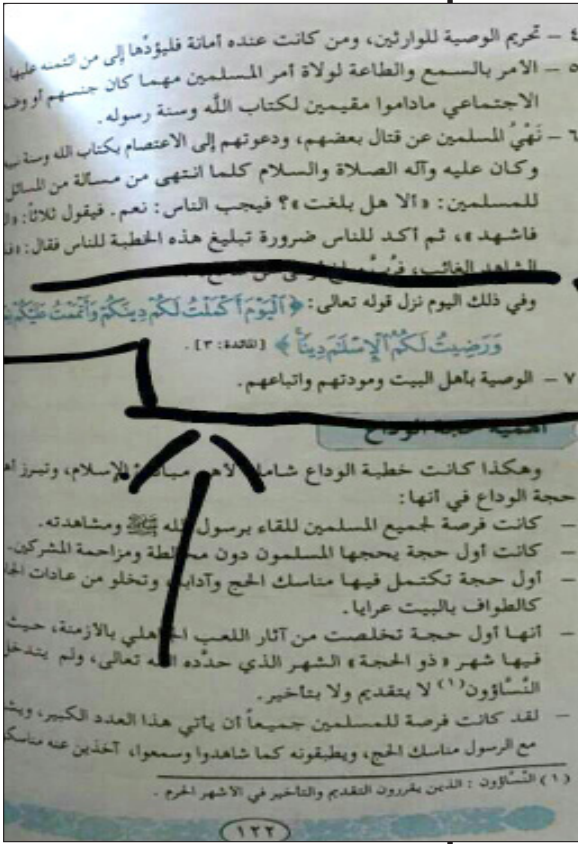 ٤ – تحريم الوصية للوارثين، ومن كانت عنده أمانة فليؤدِّها إلى من ائتمنه عليها
٥ – الامر بالسمع والطاعة لولاة أمر المسلمين مهما كان جنسهم أو
الاجتماعي ماداموا مقيمين لكتاب اللَّه وسنة رسوله.
٦ – نَهْيُ المسلمين عن قتال بعضهم، ودعوتهم إلى الاعتصام بكتاب الله وسنة
وكان عليه وآله الصلاة والسلام كلما انتهى من مسألة من المسائل
للمسلمين: «ألا هل بلغت»؟ فيجب الناس: نعم. فيقول ثلاثاً:
فاشهد»، ثم أكد للناس ضرورة تبليغ هذه الخطبة للناس فقال:
الشاهد الغائب، فرُبَّ
وفي ذلك اليوم نزل قوله تعالى: ﴿ ٱلْيَوْمَ أَكْمَلْتُ لَكُمْ دِينَكُمْ وَأَتْمَمْتُ عَلَيْكُمْ
وَرَضِيتُ لَكُمُ ٱلْإِسْلَٰمَ دِينًا ﴾ [المائدة: ٣].
٧ – الوصية بأهل البيت ومودتهم واتباعهم.
أهمية حجة الوداع
وهكذا كانت خطبة الوداع الإسلام، وتبرز
حجة الوداع في أنها:
– كانت فرصة لجميع المسلمين للقاء برسول الله ﷺ ومشاهدته.
– كانت أول حجة يحجها المسلمون دون مخالطة ومزاحمة المشركين.
– أول حجة تكتمل فيها مناسك الحج وآدابه وتخلو من عادات
كالطواف بالبيت عرايا.
– أنها أول حجة تخلصت من آثار اللعب الجاهلي بالأزمنة، حيث
فيها شهر «ذو الحجة» الشهر الذي حدَّده الله تعالى، ولم يتدخل
النَّسَّاؤون(١) لا بتقديم ولا بتأخير.
– لقد كانت فرصة للمسلمين جميعاً أن يأتي هذا العدد الكبير،
مع الرسول مناسك الحج، ويطبقونه كما شاهدوا وسمعوا، آخذين عنه
(١) النَّسَّاؤون: الذين يقررون التقديم والتأخير في الأشهر الحرم.
١٢٢